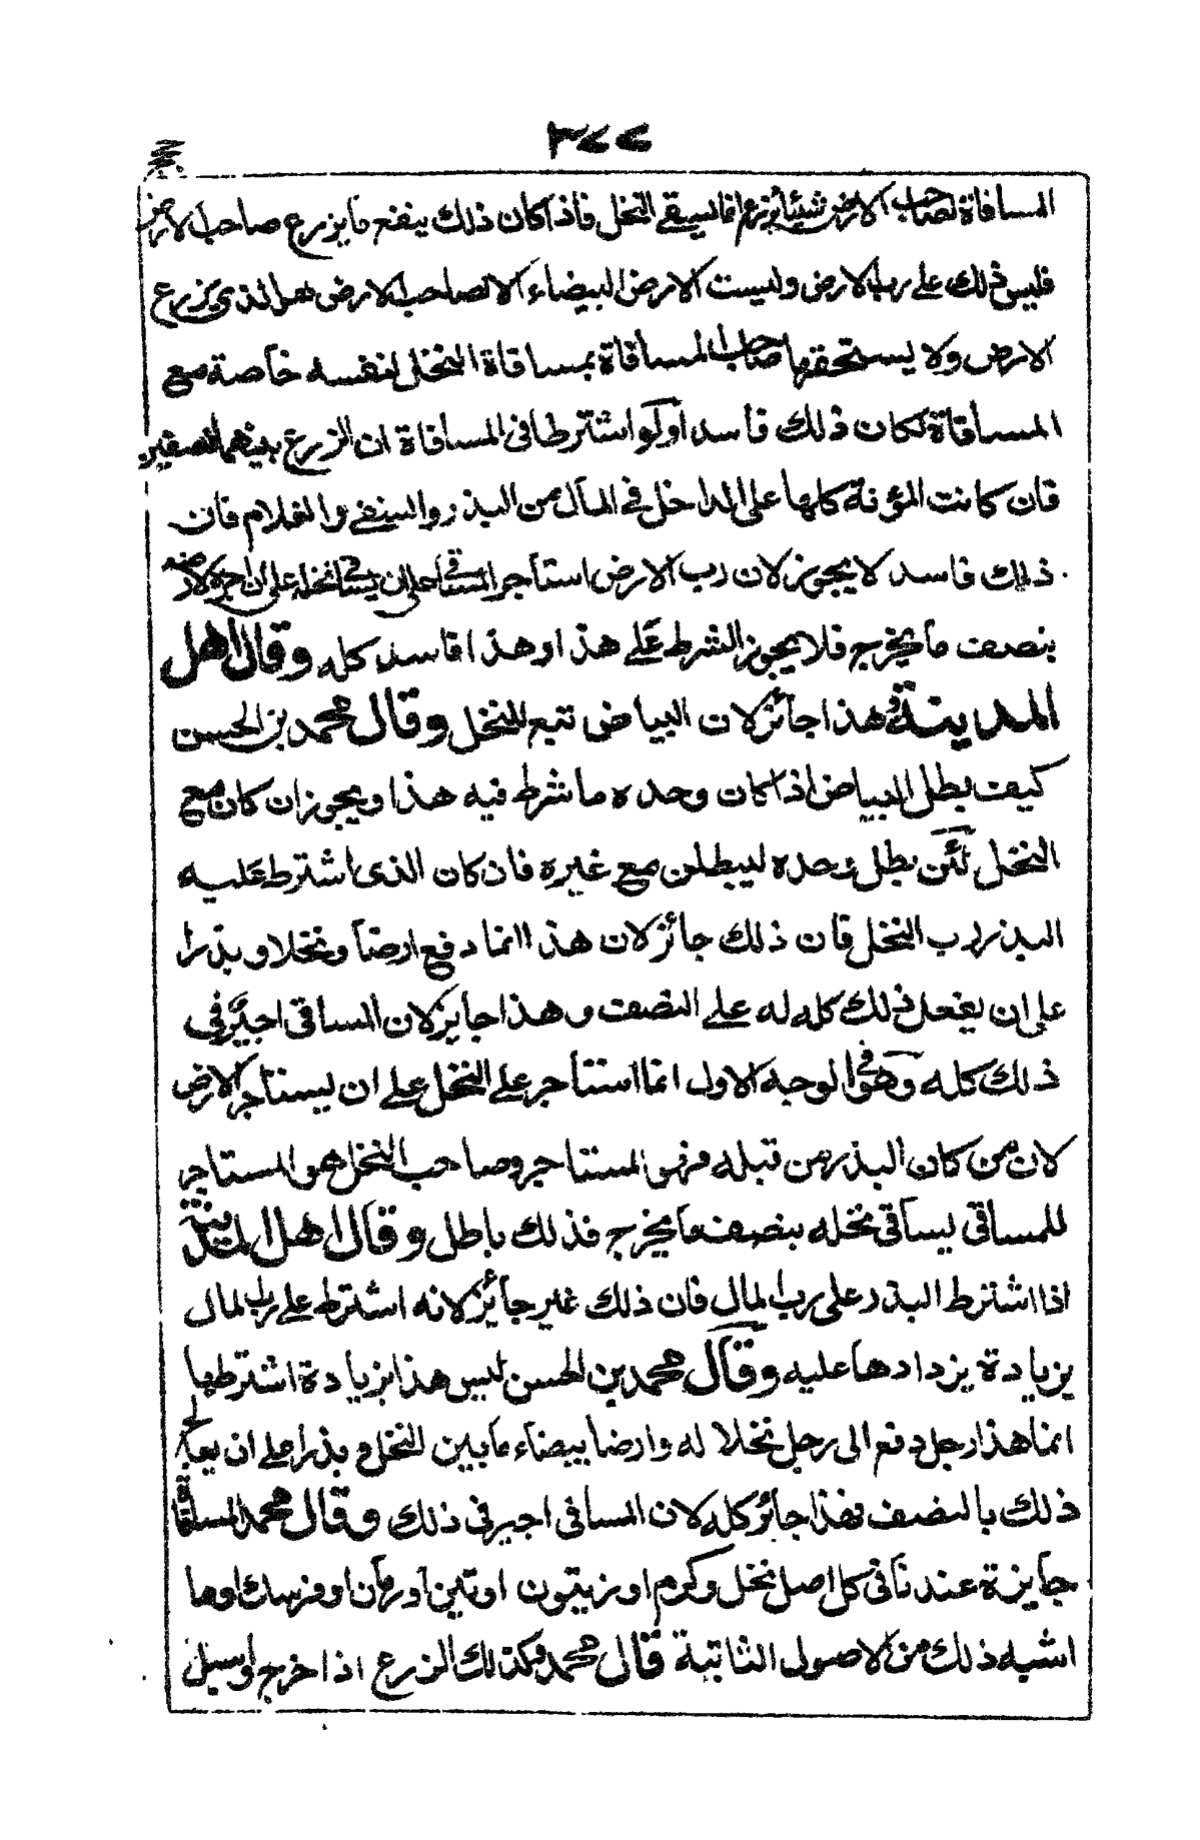 ٣٧٧
المساقاة لصاحب الارض شيئا يزرع انما يسقي النخل فاذا كان ذلك ينفع ما يزرع صاحب الارض
فليس ذلك على رب الارض وليست الارض البيضاء الا لصاحب الارض هل الذي يزرع
الارض ولا يستحقها صاحب المساقاة بمساقاة النخل لنفسه خاصة مع
المساقاة لكان ذلك فاسد اولو اشترطا في المساقاة ان الزرع بينهما نصفين
فان كانت المؤنة كلها على الداخل في المال من البذر والسقي والغلام فان
ذلك فاسد لا يجوز لان رب الارض استأجر المساقي على ان يسقي نخله على ان اجره الارض
بنصف ما يخرج فلا يجوز الشرط على هذا وهذا فاسد كله وقال اهل
المدينة هذا جائز لان البياض تتبع للنخل وقال محمد بن الحسن
كيف بطل البياض اذا كان وحده ما شرط فيه هذا ويجوز ان كان مع
النخل لئن بطل وحده ليبطلن مع غيره فان كان الذى اشترط عليه
البذر رب النخل فان ذلك جائز لان هذا انما دفع ارضا ونخلا وبذرا
على ان يفعل ذلك كله له على النصف وهذا جايز لان المساقى اجير في
ذلك كله وهو في الوجه الاول انما استأجر على النخل على ان يستأجر الارض
لان من كان البذر من قبله فهو المستاجر وصاحب النخل هو المستاجر
للمساقى يساقى نخله بنصف ما يخرج فذلك باطل وقال اهل المدينة
اذا اشترط البذر على رب المال فان ذلك غير جائز لانه اشترط على رب المال
يزيادة يزدادها عليه وقال محمد بن الحسن ليس هذا بزيادة اشترطها
انما هذا رجل دفع الى رجل نخلا له وارضا بيضاء ما بين النخل و بذرا على ان يعالج
ذلك بالنصف فهذا جائز كله لان المساقى اجير في ذلك وقال محمد المساقاة
جايزة عندنا في كل اصل نخل وكرم او زيتون او تين او رمان او فرسك او ما
اشبه ذلك من الاصول الثابتة قال محمد وكذلك الزرع اذا خرج واسبل